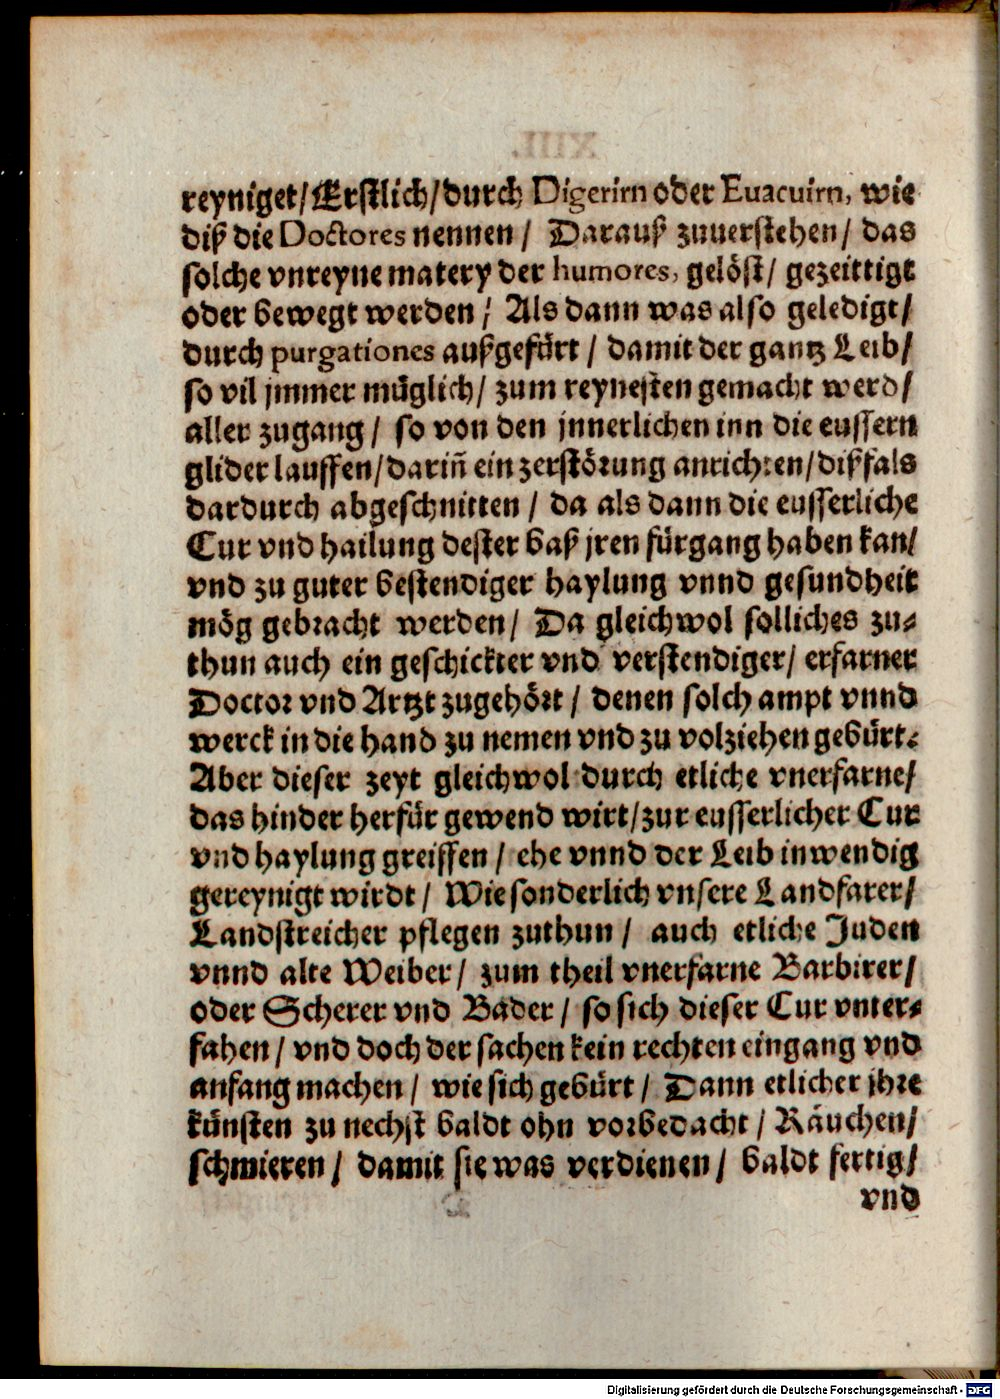 reyniget/Erstlich/durch Digerirn oder Euacuirn, wie
diß die Doctores nennen / Darauß zuuerstehen / das
solche vnreyne matery der humores, gelöst / gezeittigt
oder bewegt werden / Als dann was also geledigt /
durch purgationes außgefürt / damit der gantz Leib /
so vil jmmer müglich / zum reynesten gemacht werd /
aller zugang / so von den jnnerlichen inn die eussern
glider lauffen / dariñ ein zerstörung anrichten / dißfals
dardurch abgeschnitten / da als dann die eusserliche
Cur vnd hailung dester baß jren fürgang haben kan /
vnd zu guter bestendiger haylung vnnd gesundheit
mög gebracht werden / Da gleichwol solliches zu-
thun auch ein geschickter vnd verstendiger / erfarner
Doctor vnd Artzt zugehört / denen solch ampt vnnd
werck in die hand zu nemen vnd zu volziehen gebürt.
Aber dieser zeyt gleichwol durch etliche vnerfarne /
das hinder herfür gewend wirt / zur eusserlicher Cur
vnd haylung greiffen / ehe vnnd der Leib inwendig
gereynigt wirdt / Wie sonderlich vnsere Landfarer /
Landstreicher pflegen zuthun / auch etliche Juden
vnnd alte Weiber / zum theil vnerfarne Barbirer /
oder Scherer vnd Bader / so sich dieser Cur vnter-
fahen / vnd doch der sachen kein rechten eingang vnd
anfang machen / wie sich gebürt / Dann etlicher jhre
künsten zu nechst baldt ohn vorbedacht / Räuchen /
schmieren / damit sie was verdienen / baldt fertig /
vnd
Digitalisierung gefördert durch die Deutsche Forschungsgemeinschaft - DFG